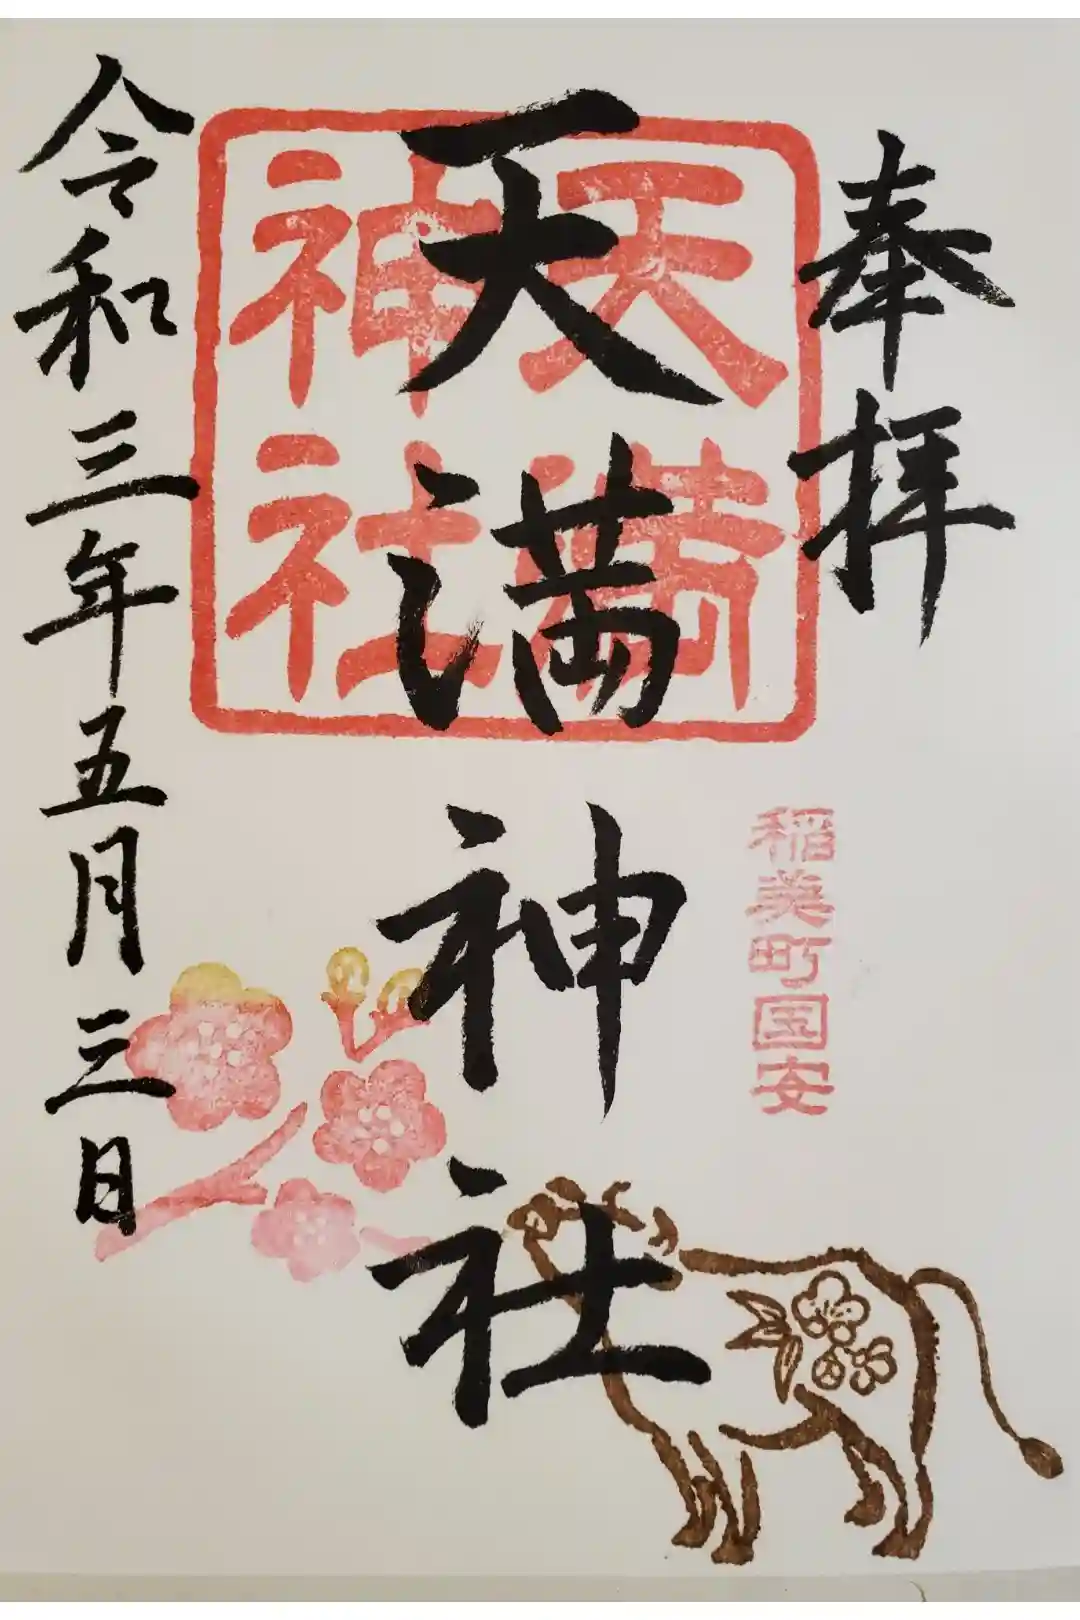 奉拝
稲美町国安
天満神社
天満
神社
令和三年五月三日